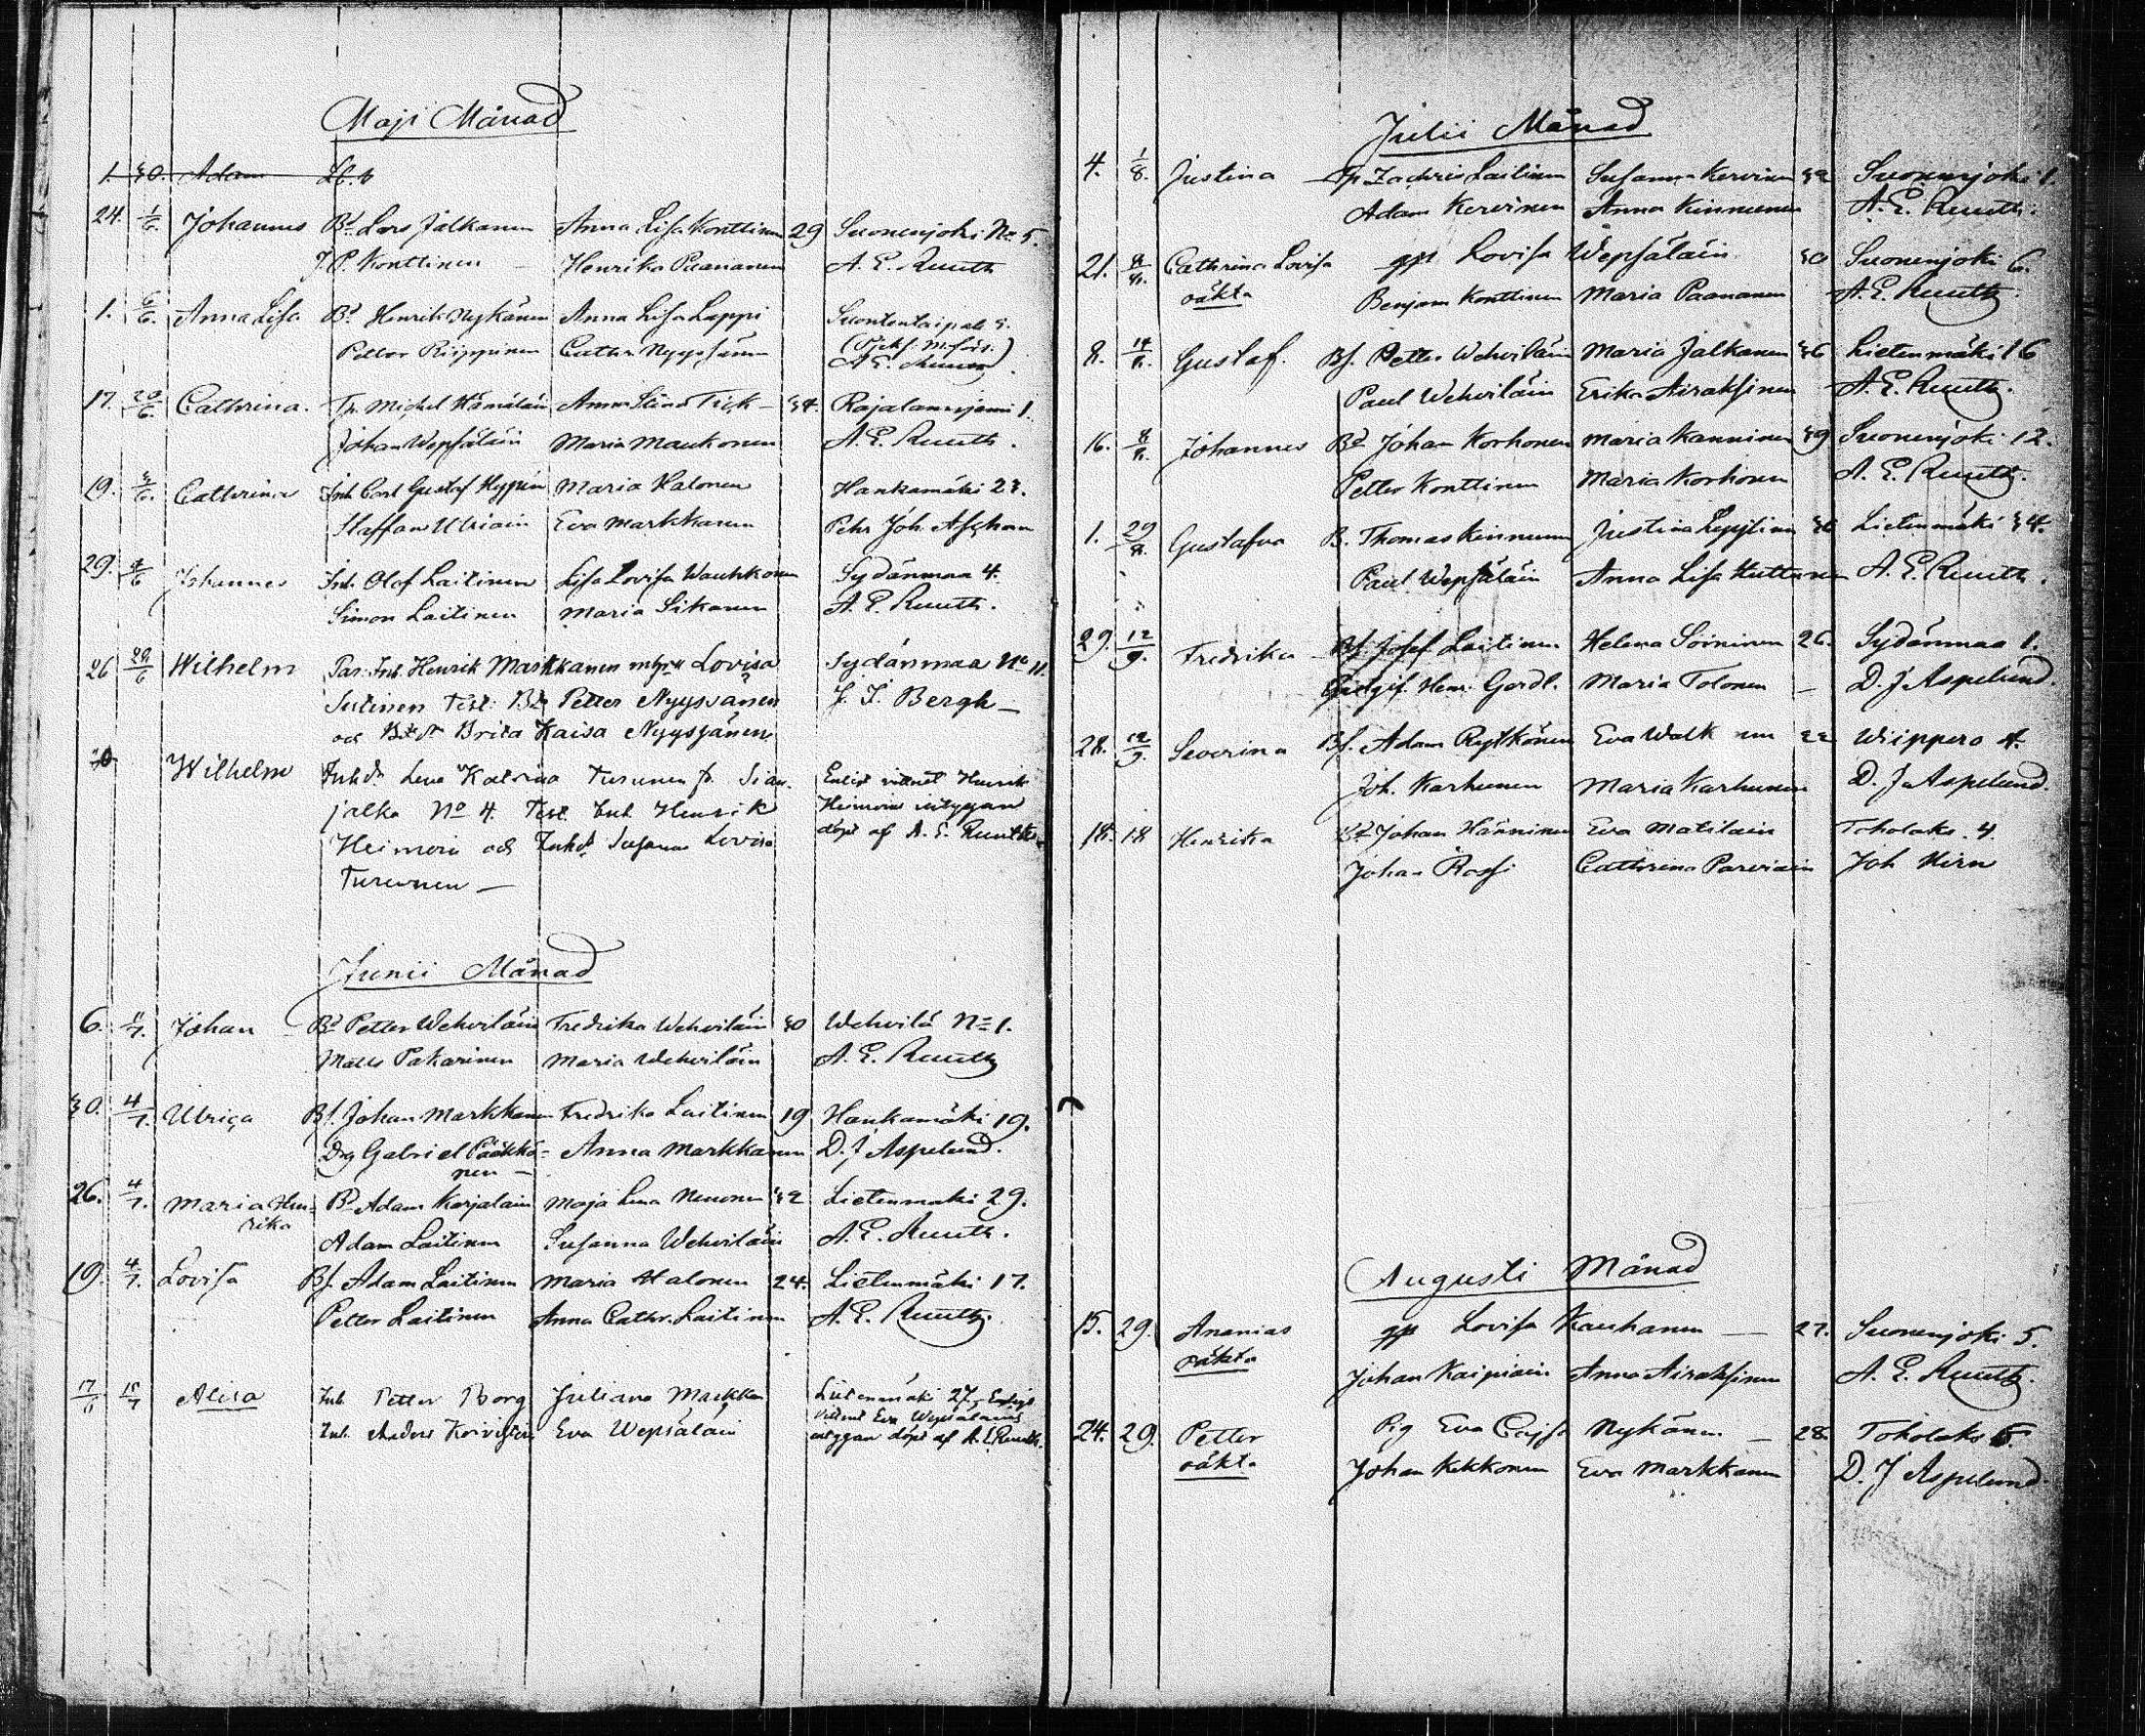 Maji Månad
1. 30. Adam
24. 1/6. Johannes Bd. Lars Jalkanen Anna Lisa Konttinen 29 Suonenjoki No 5.
J. P. Konttinen Henrika Paananen A. E. Ruuth
1. 6/6. Anna Lisa Bd. Henrik Nykänen Anna Lisa Lappi Suontentaipale 5.
Petter Riippinen Cathr. Nyyssönen
17. 20/6 Cathrina. Tp. Michel Hämäläin Anna Stina Tick 34. Rajalansijanni 1.
Johan Wepsäläin Maria Maukonen A. E. Ruuth.
19. 3/6. Cathrina Inh. Carl Gustaf Hygrén Maria Halonen Hankamäki 23.
Staffan Ulriain Eva Markkanen Pehr Joh. Aschan
29. 4/6 Johannes Inh. Olof Laitinen Lisa Lovisa Wauhkonen Sydänmaa 4.
Simon Laitinen Maria Sikanen A. E. Ruuth.
26 29/6 Wilhelm Par. Inh. Henrik Markkanen Lovisa Sydänmaa No 11.
Sutinen Test: Bd. Petter Nyyssänen J. I. Bergh
och Brita Kaisa Nyyssänen
Wilhelm Inhd. Lena Katrina Turunen fr. Sian-
jalka No 4. Test Inh Henrik
Heimoin och Inhd. Susanna Lovisa döpt af A. E. Ruuth
Turunen
Junii Månad
6. /7. Johan Bd. Petter Wehviläin Fredrika Wehviläin 30 Wehvilä No 1.
Matts Pakarinen Maria Wehviläin A. E. Ruuth
30. 4/7. Ulrica Bf. Johan Markkanen Fredrika Laitinen 19 Hankamäki 19.
Drg Gabriel Pääkkö- Anna Markkanen D. J Aspelund.
nen
26. 4/7. Maria Hen- Bd. Adam Karjalain Maja Lena Nenonen 32 Lietenmäki 29.
rika
Adam Laitinen Susanna Wehviläin A. E. Ruuth.
19. 4/7. Lovisa Bf. Adam Laitinen Maria Halonen 24. Lietenmäki 17.
Petter Laitinen Anna Cathr. Laitinen A. E. Ruuth.
17/6 15/7 Alisa Inh. Petter Borg Juliana Markka Lietenmäki 27, Enligt
Inh. Anders Koivistin Eva Wepsäläin vittnet Eva Wepsäläins
intygan döpt af A. E. Ruuth.
Julii Månad
4. 1/8. Justina Tp. Zachris Laitinen Susanna Kervinen 32 Suonenjoki 1.
Adam Kervinen Anna Kinnunen A. E. Ruuth.
21. Cathrina Lovisa gp Lovisa Wepsäläin 30 Suonenjoki 6.
oäkta Benjam Konttinen Maria Paananen A. E. Ruuth
8. 14/8. Gustaf. Bf. Petter Wehviläin Maria Jalkanen 36 Lietenmäki 16
Paul Wehviläin Erika Airaksinen A. E. Ruuth.
16. 8/8. Johannes Bd. Johan Korhonen Maria Kanninen 39 Suonenjoki 12.
Petter Konttinen Maria Korhonen A. E. Ruuth.
1. 29/8. Gustafva B. Thomas Kinnunen Justina 36 Lietenmäki 34.
Paul Wepsäläin Anna Lisa Huttunen A. E. Ruuth.
29. 12/9. Fredrika Bf. Josef Laitinen Helena Soininen 26. Sydänmaa 1.
Henr. Gerdl. Maria Tolonen D. J Aspelund.
28. 12/9. Severina Bf. Adam Rytkönen Eva Walk nen 22 Wiippero 4.
Joh. Karhunen Maria Karhunen D. J Aspelund.
18. 18 Henrika Bd. Johan Hänninen Eva Matilain Toholaks. 4.
Johan Rossi Cathrina Parviain Joh Hirn
Augusti Månad
15. 29. Ananias gp Lovisa Kauhanen 27. Suonenjoki 5.
oäkta
Johan Kaipiain Anna Airaksinen A. E. Ruuth.
24. 29. Petter Pig Eva Cajsa Nykänen 28. Toholaks 5.
oäkta Johan Kekkonen Eva Markkanen D. J Aspelund.